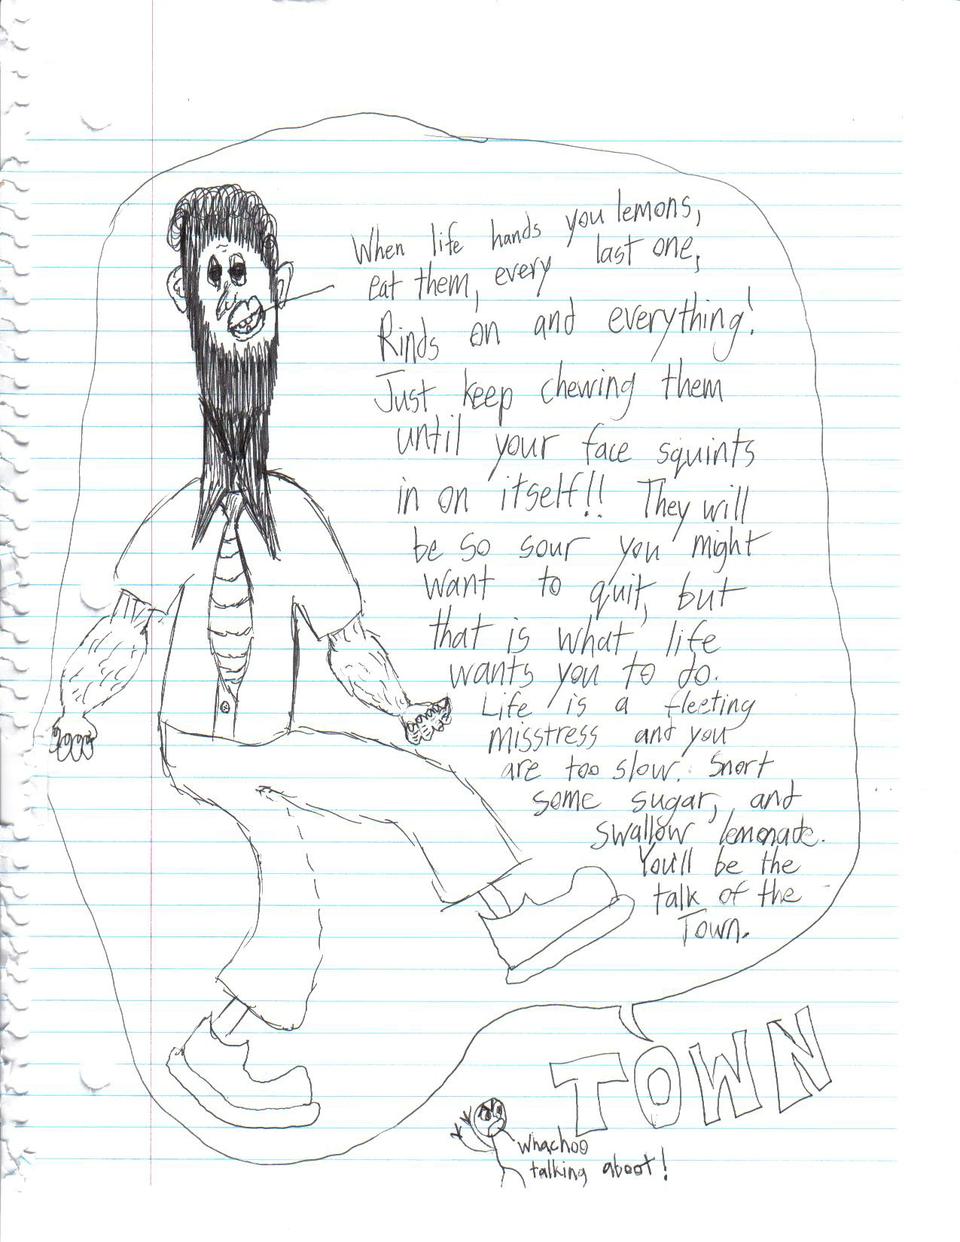 When life hands you lemons,
eat them, every last one,
Rinds on and everything!
Just keep chewing them
until your face squints
in on itself!! They will
be so sour you might
want to quit, but
that is what life
wants you to do.
Life is a fleeting
misstress and you
are too slow. Snort
some sugar, and
swallow lemonade.
You'll be the
talk of the
Town.
TOWN
Whachoo
talking aboot!